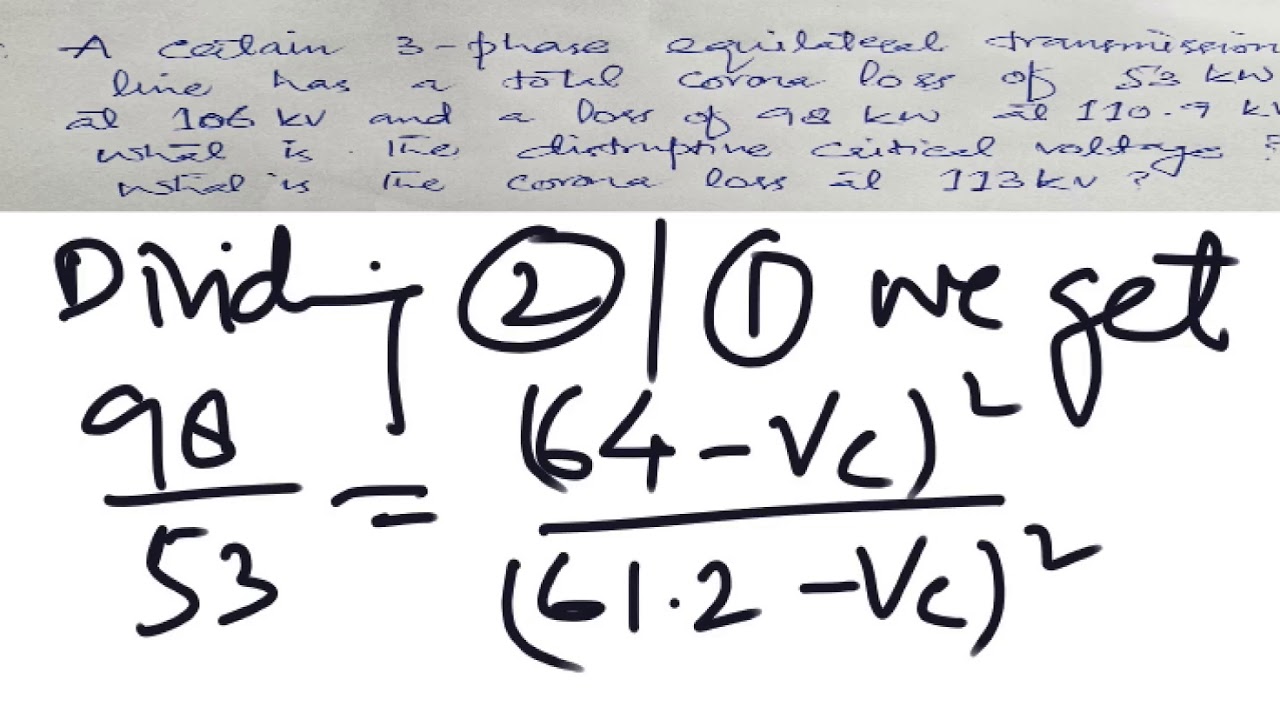 A certain 3-phase equilateral transmission
line has a total corona loss of 53 kw
at 106 kv and a loss of 98 kw at 110.9 kv
what is the disruptive critical voltage ?
what is the corona loss at 113 kv ?
Dividing ② | ① we get
98 (64 - Vc)²
=
53 (61.2 - Vc)²